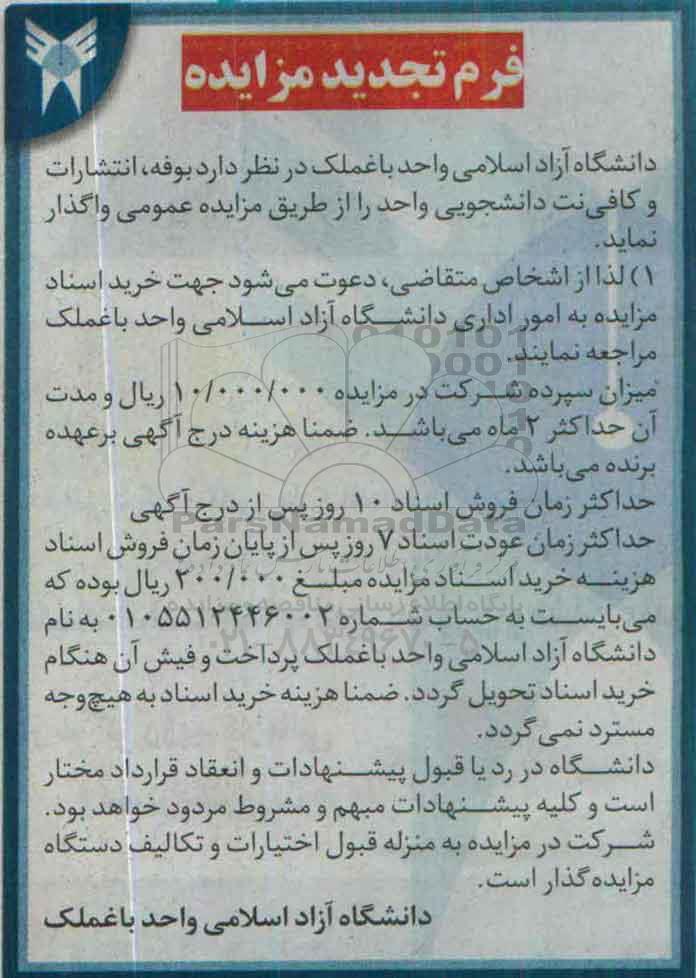 فرم تجدید مزایده
دانشگاه آزاد اسلامی واحد باغملک در نظر دارد بوفه، انتشارات
و کافی‌نت دانشجویی واحد را از طریق مزایده عمومی واگذار
نماید.
۱) لذا از اشخاص متقاضی، دعوت می‌شود جهت خرید اسناد
مزایده به امور اداری دانشگاه آزاد اسلامی واحد باغملک
مراجعه نمایند.
میزان سپرده شرکت در مزایده ۱۰/۰۰۰/۰۰۰ ریال و مدت
آن حداکثر ۲ ماه می‌باشد. ضمنا هزینه درج آگهی برعهده
برنده می‌باشد.
حداکثر زمان فروش اسناد ۱۰ روز پس از درج آگهی
ParsNamadData
حداکثر زمان عودت اسناد ۷ روز پس از پایان زمان فروش اسناد
هزینه خرید اسناد مزایده مبلغ ۲۰۰/۰۰۰ ریال بوده که
می‌بایست به حساب شماره ۰۱۰۵۵۱۲۴۴۶۰۰۲ به نام
دانشگاه آزاد اسلامی واحد باغملک پرداخت و فیش آن هنگام
خرید اسناد تحویل گردد. ضمنا هزینه خرید اسناد به هیچ‌وجه
مسترد نمی‌گردد.
دانشگاه در رد یا قبول پیشنهادات و انعقاد قرارداد مختار
است و کلیه پیشنهادات مبهم و مشروط مردود خواهد بود.
شرکت در مزایده به منزله قبول اختیارات و تکالیف دستگاه
مزایده‌گذار است.
دانشگاه آزاد اسلامی واحد باغملک